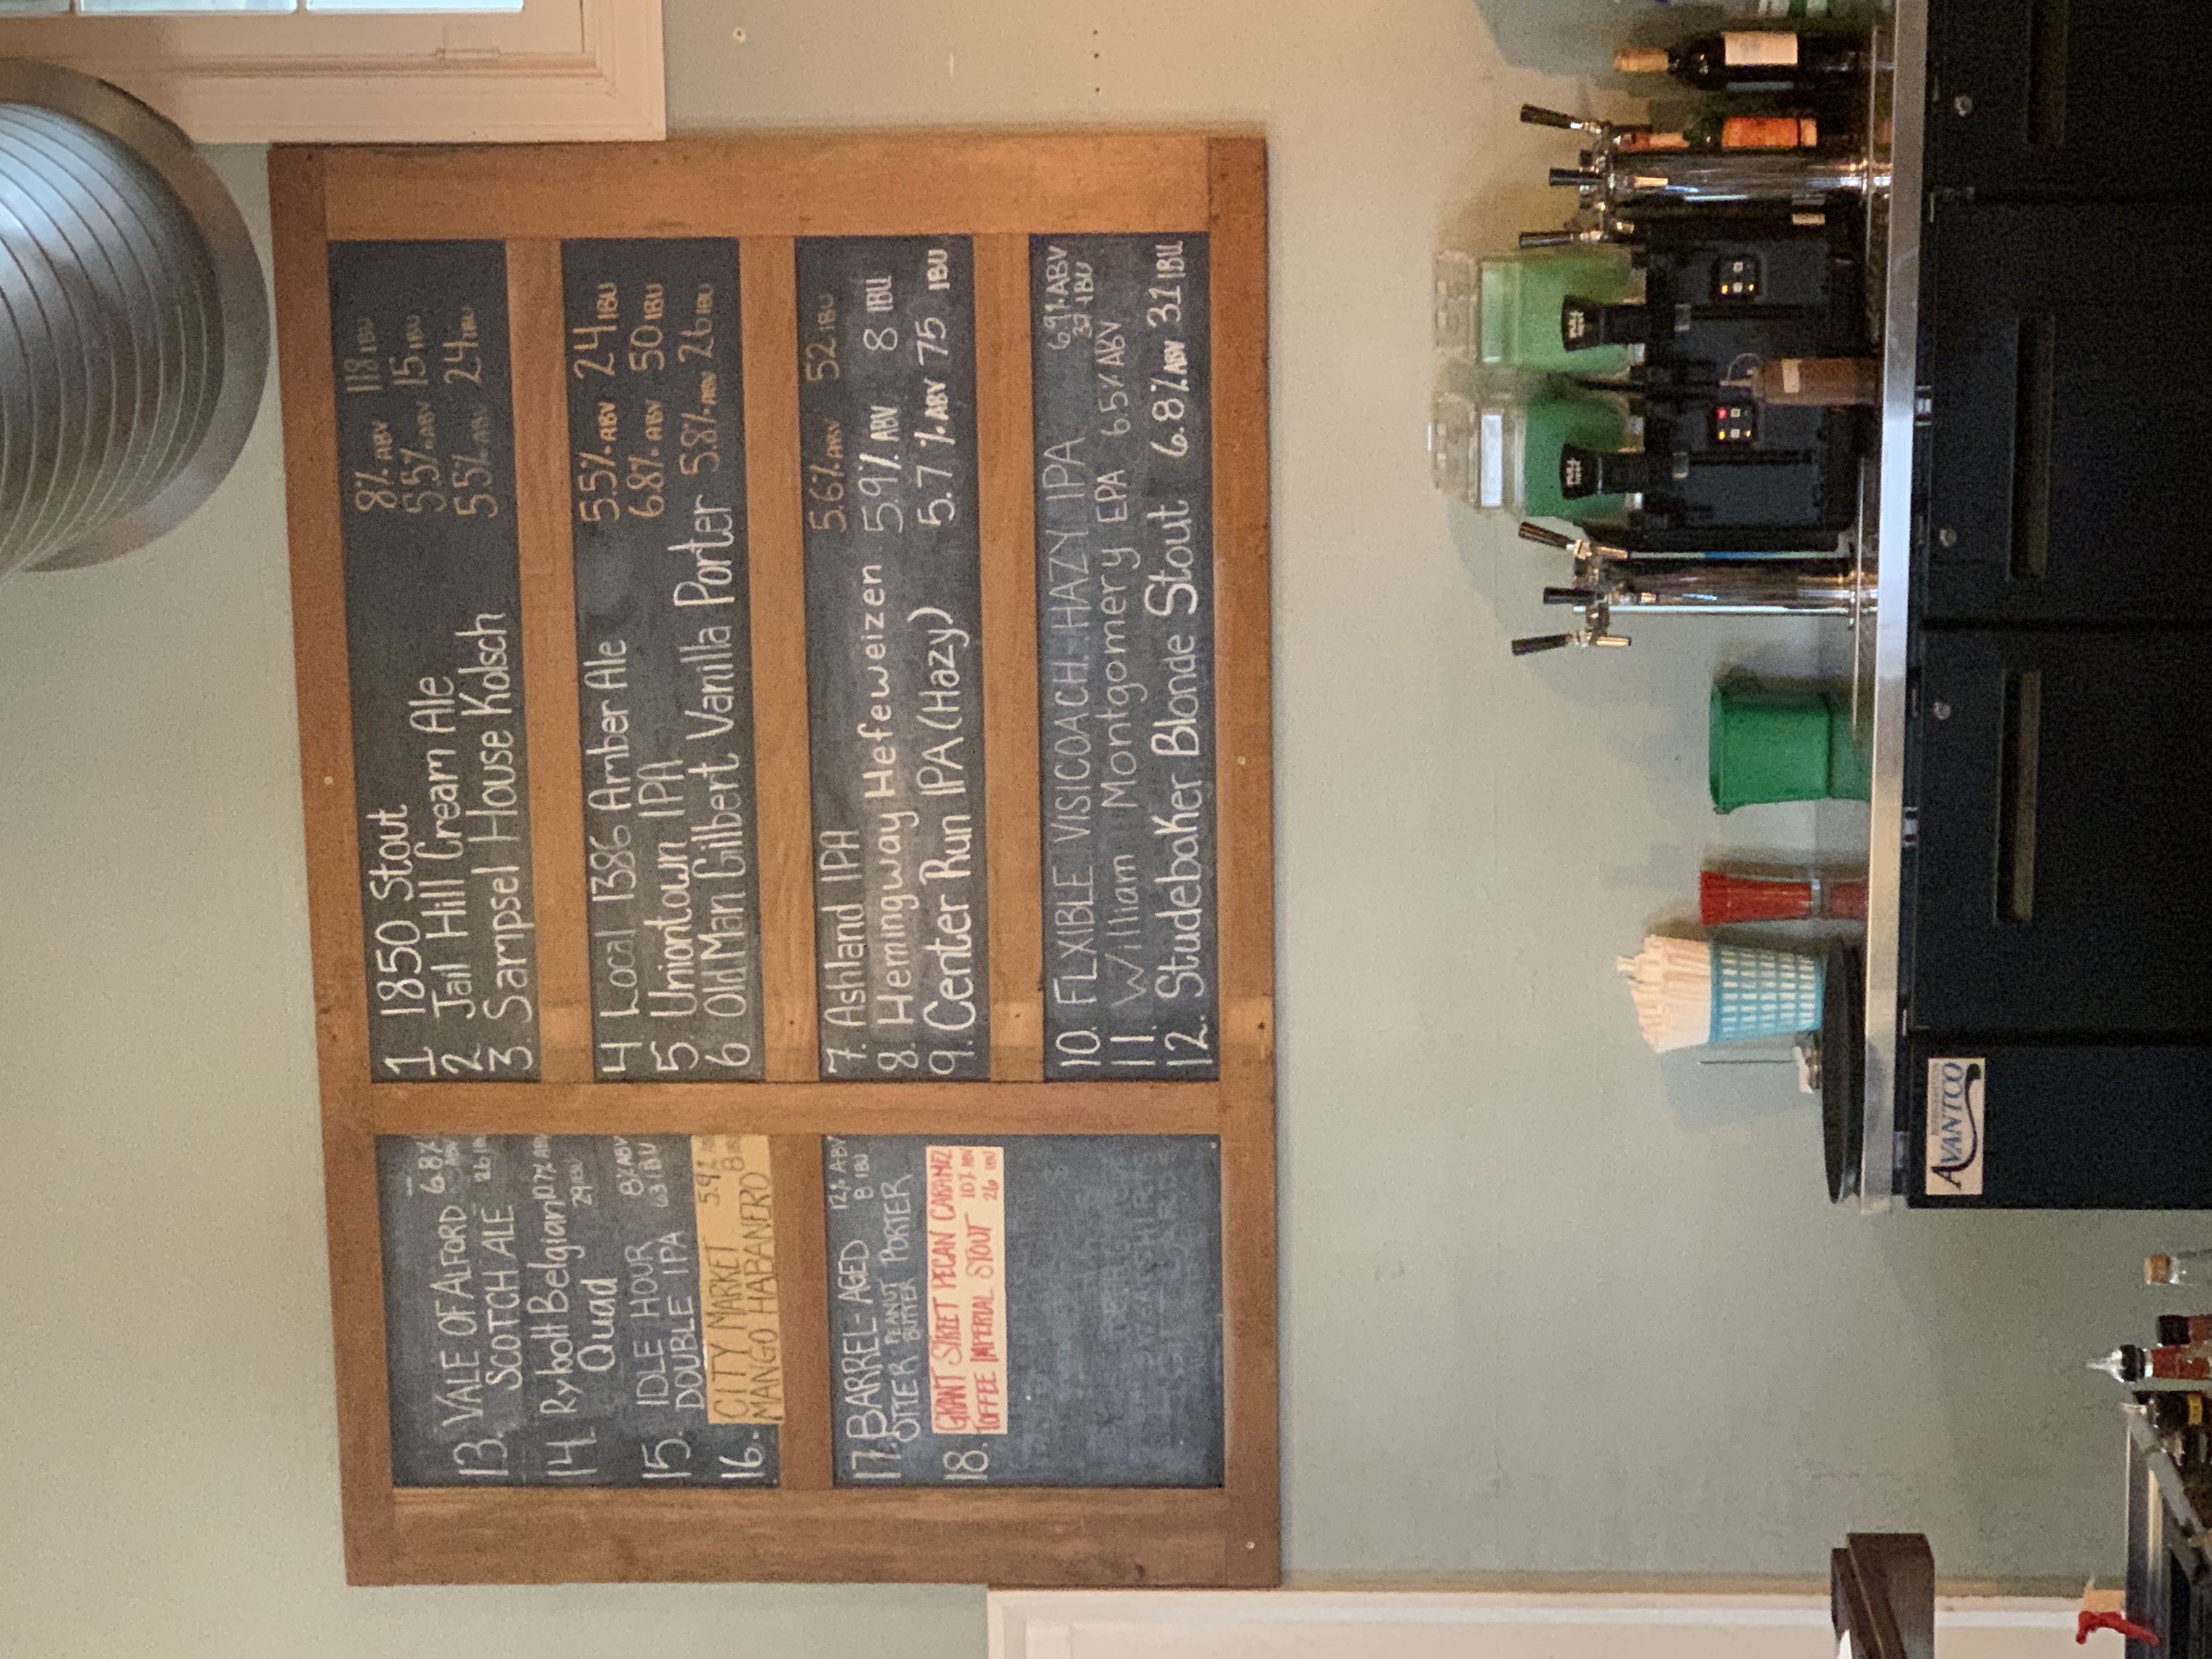 13. VALE OF ALFORD 6.8%
SCOTCH ALE ABV 26 IBU
14. Rybolt Belgian 10.7% ABV
Quad 29 IBU
15. IDLE HOUR 8% ABV
DOUBLE IPA 63 IBU
16. CITY MARKET 5.9%
MANGO HABANERO 8
17. BARREL-AGED 12% ABV
OTTER PEANUT BUTTER PORTER 8 IBU
18. GRANT STREET PECAN CARAMEL
TOFFEE IMPERIAL STOUT 10% ABV 26 IBU
1 1850 Stout 8% ABV 118 IBU
2 Jail Hill Cream Ale 5.5% ABV 15 IBU
3. Sampsel House Kolsch 5.5% ABV 24 IBU
4 Local 1386 Amber Ale 5.5% ABV 24 IBU
5 Uniontown IPA 6.8% ABV 50 IBU
6 Old Man Gilbert Vanilla Porter 5.8% ABV 26 IBU
7. Ashland IPA 5.6% ABV 52 IBU
8. Hemingway Hefeweizen 5.9% ABV 8 IBU
9. Center Run IPA (Hazy) 5.7% ABV 75 IBU
10. FLXIBLE VISICOACH HAZY IPA 6.9% ABV 37 IBU
11. William Montgomery EPA 6.5% ABV
12. Studebaker Blonde Stout 6.8% ABV 31 IBU
AVANTCO